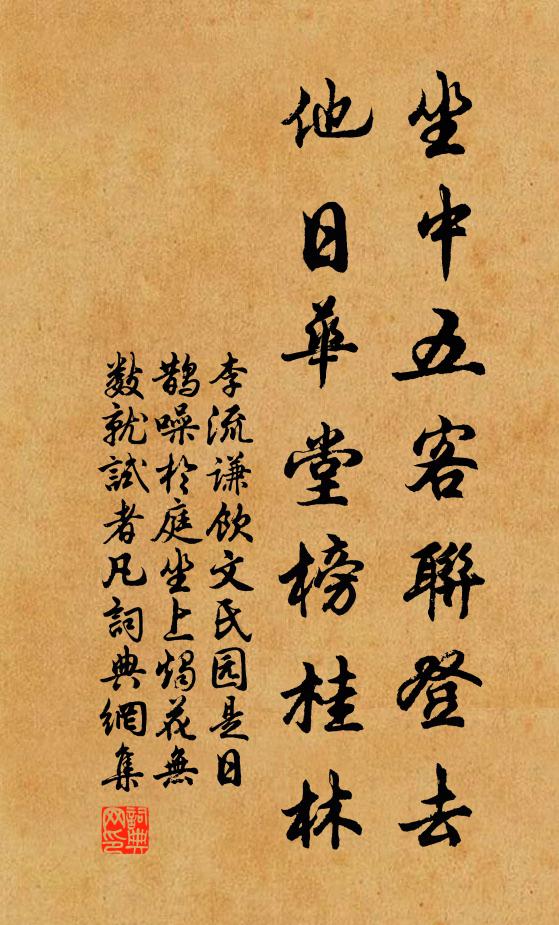 坐中五客聯登去
他日華堂榜桂林
李流谦飲文氏园是日
鹊噪於庭坐上燭花無
数就試者凡詞典網集
詞典网印